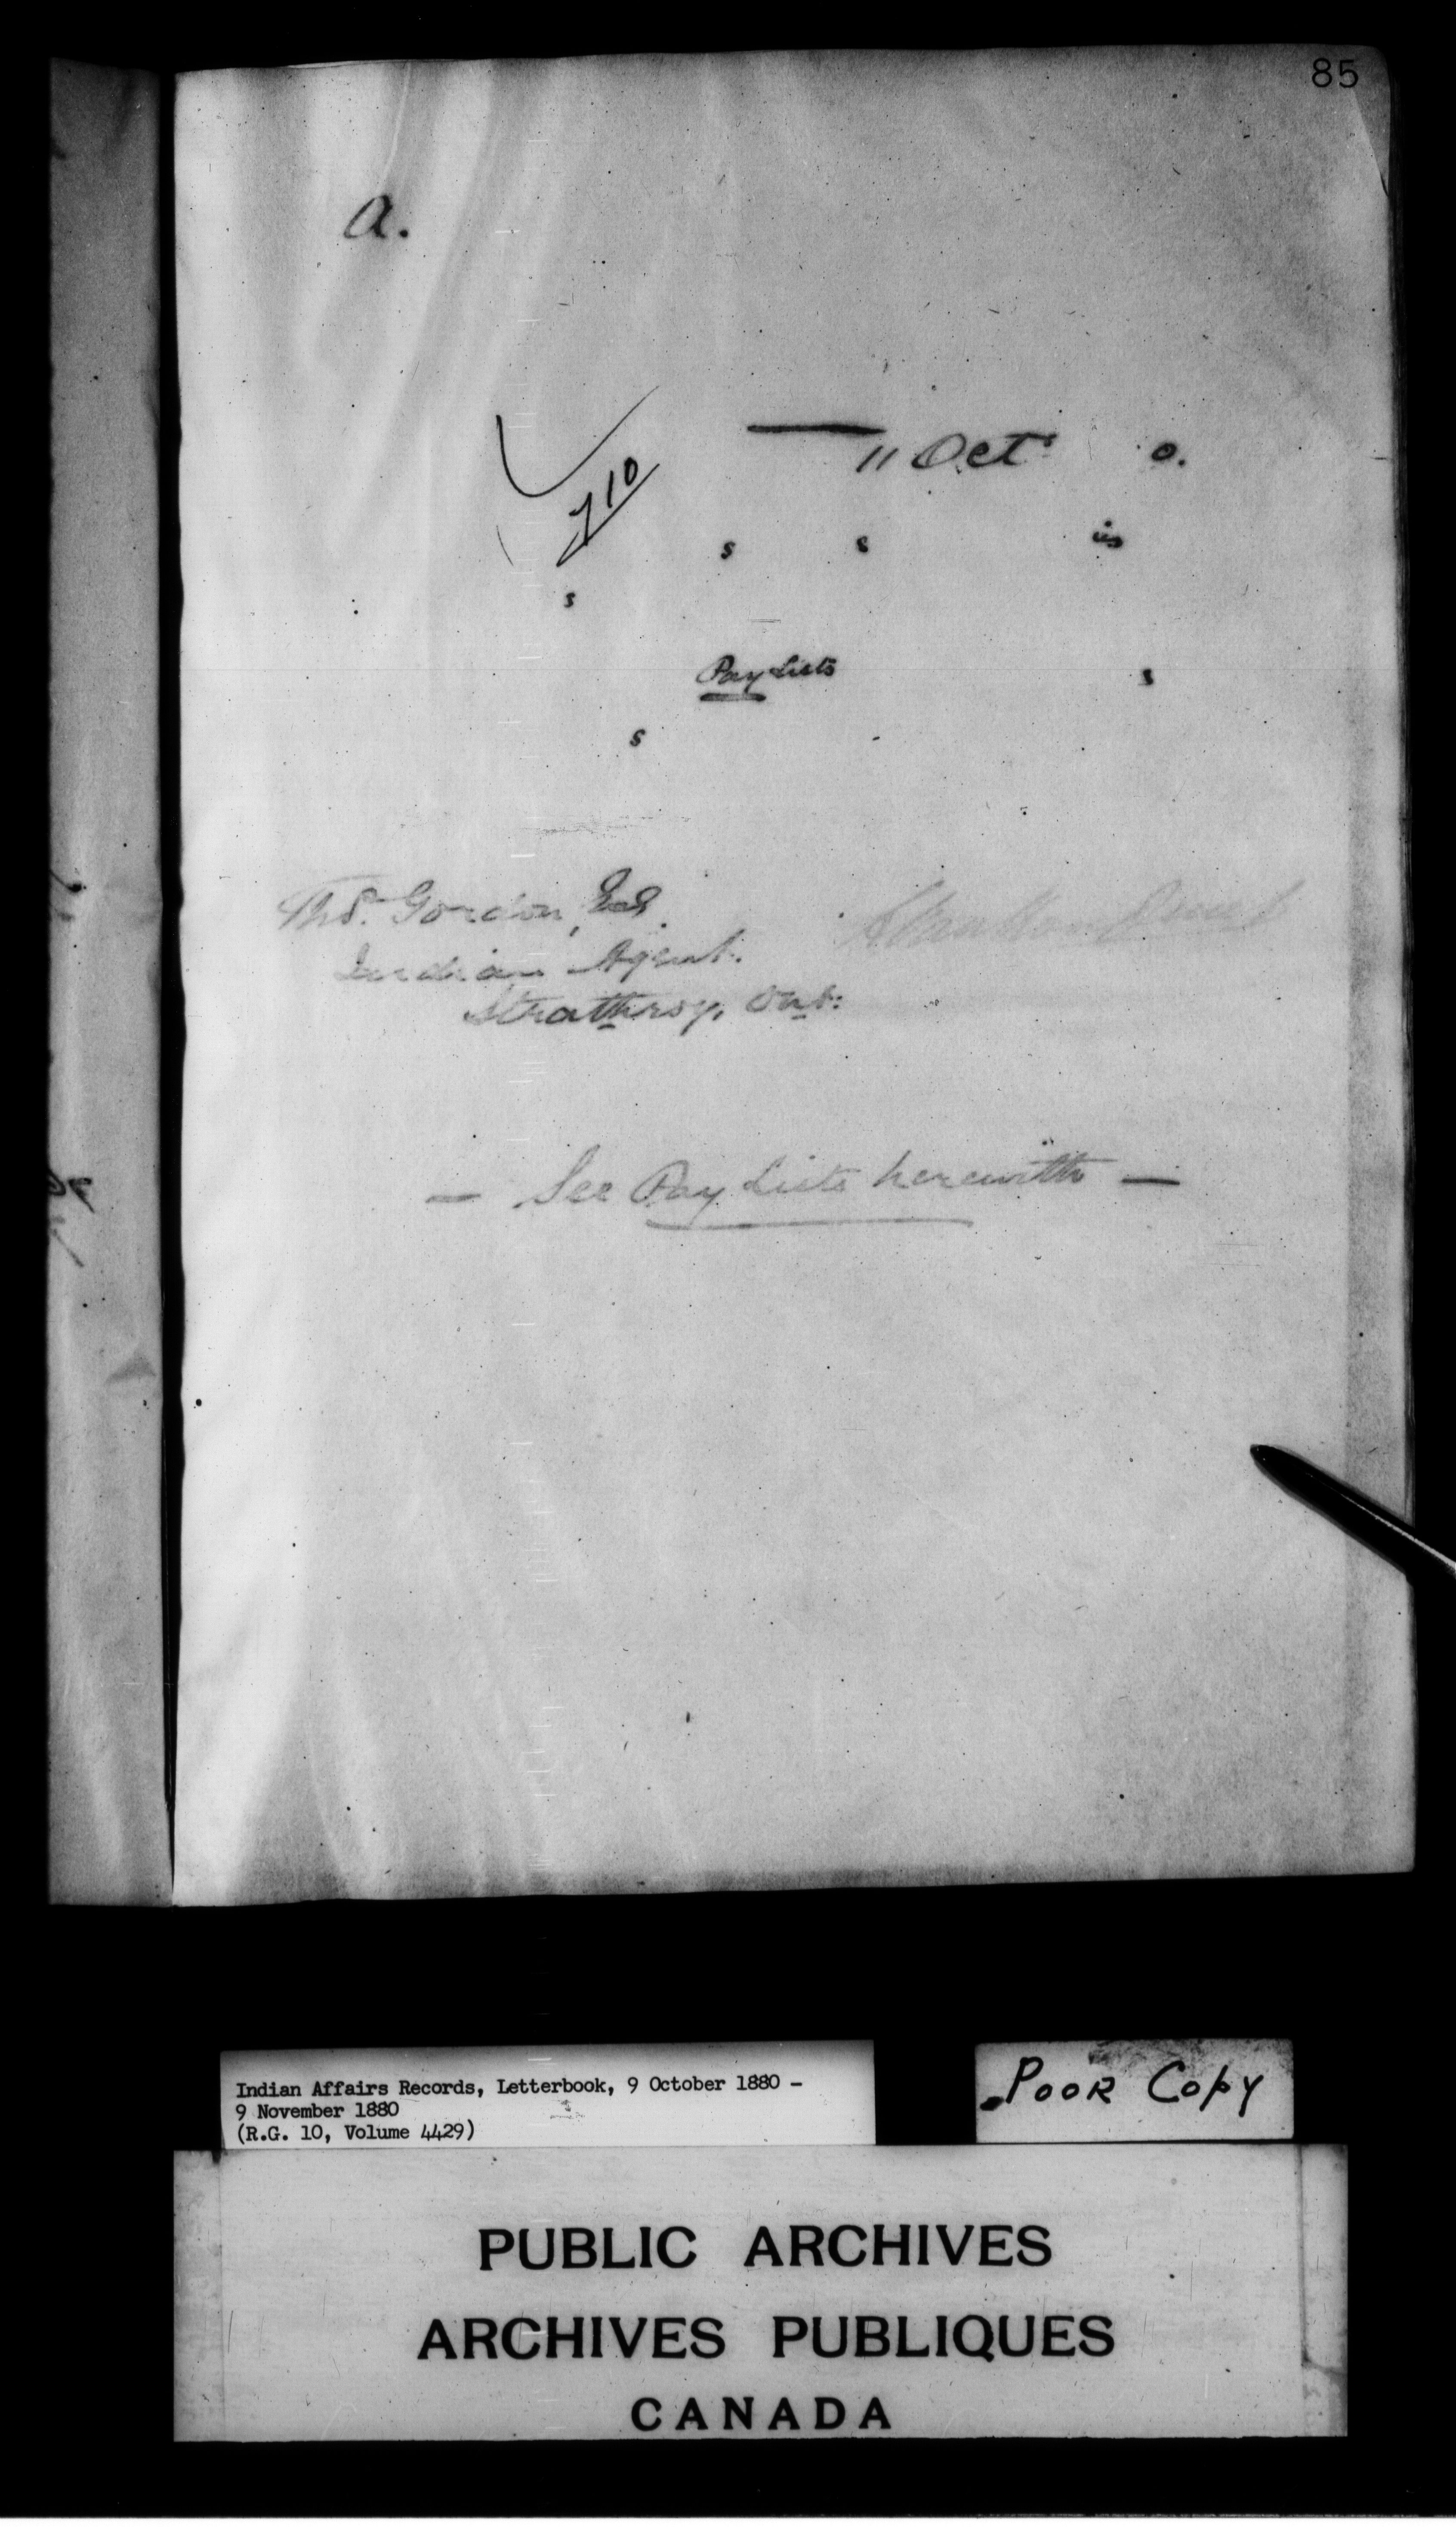 85
a.
11 Oct 0.
710
s s in
s
Pay Lists s
s
Thos. Gordon, Esq.
Indian Agent.
Strathroy, Ont:
— See Pay Lists herewith —
Indian Affairs Records, Letterbook, 9 October 1880 -
9 November 1880
(R.G. 10, Volume 4429)
Poor Copy
PUBLIC ARCHIVES
ARCHIVES PUBLIQUES
CANADA